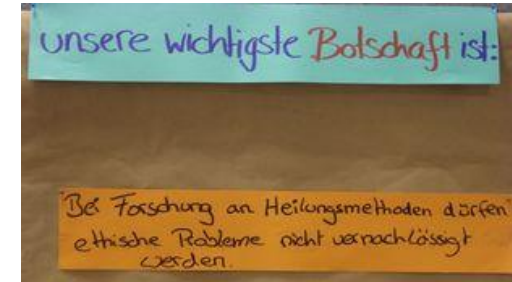 unsere wichtigste Botschaft ist:
Bei Forschung an Heilungsmethoden dürfen
ethische Probleme nicht vernachlässigt
werden.